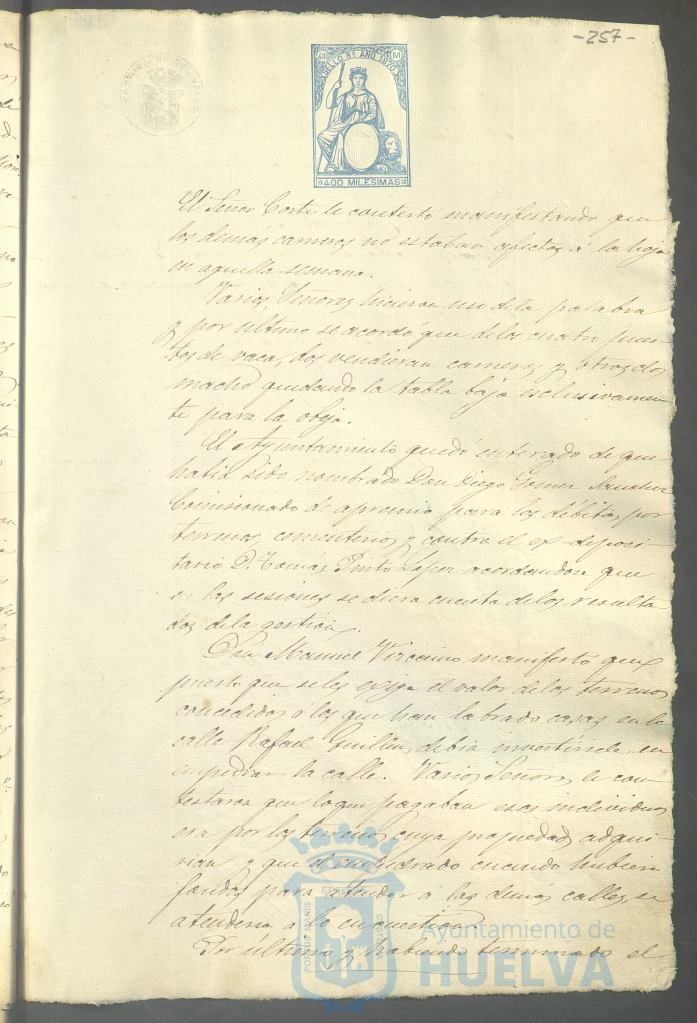 -257-
SELLO 9º AÑO 1870
40 M
400 MILESIMAS
El Señor Corte le contestó manifestando que
los demás carneros no estaban afectos á la hoja
en aquella semana.
Varios Señores hicieron uso de la palabra
y por ultimo se acordó que de los cuatro pues-
tos de vaca, dos vendieran carneros y otros dos
macho quedando la tabla baja esclusivamen
te para la oveja.
El Ayuntamiento quedó enterado de que
habia sido nombrado Don Diego Gomez Sanchez
Comisionado de apremio para los débitos por
terrenos, cementerio y contra el ex-deposi
tario D. Tomás Pinto Lopez acordandose que
en las sesiones se diera cuenta de los resulta
dos de la gestion.
Don Manuel Vizcaino manifestó que
puesto que se les exige el valor de los terrenos
concedidos á los que han labrado casas en la
calle Rafael Guillen, debia invertirse en
empedrar la calle. Varios Señores le con
testaron que lo que pagaban esos individuos
era por los terrenos cuya propiedad adqui
rian y que el empedrado cuando hubiera
fondos para atender á las demás calles, se
atenderia a la en cuestion.
Por ultimo y habiendo terminado el
Ayuntamiento de
HUELVA